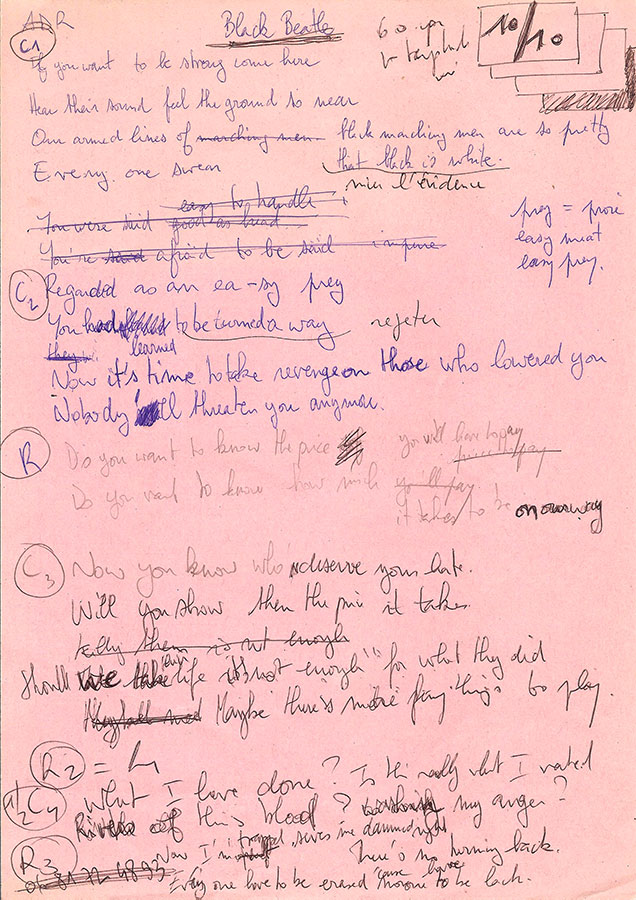 Black Beatles
10/10
C1
If you want to be strong come here
Hear their sound feel the ground so near
Our armed lines of marching men black marching men are so pretty
Every one swear that black is white.
nier l'évidence
easy to handle
You were said good as bread
You're said afraid to be said impure
prey = proie
easy meat
easy prey.
C2
Regarded as an ea-sy prey
You had to be turned away rejeter
they learned
Now it's time to take revenge on those who lowered you
Nobody'll threaten you anymore.
R
Do you want to know the price you will have to pay
price to pay
Do you want to know how much you'll pay
it takes to be on our way
C3
Now you know who deserve your hate.
Will you show them the price it takes.
Killing them is not enough
Should we take their life it's not enough for what they did
Maybe there's more funny things to play.
R2 =
1/2 C4
What I have done? Is this really what I wanted
River of this blood? my anger?
R3
Now I'm trapped, seems I'm damned right There's no turning back.
Every one have to be erased 'cause no one to be back.